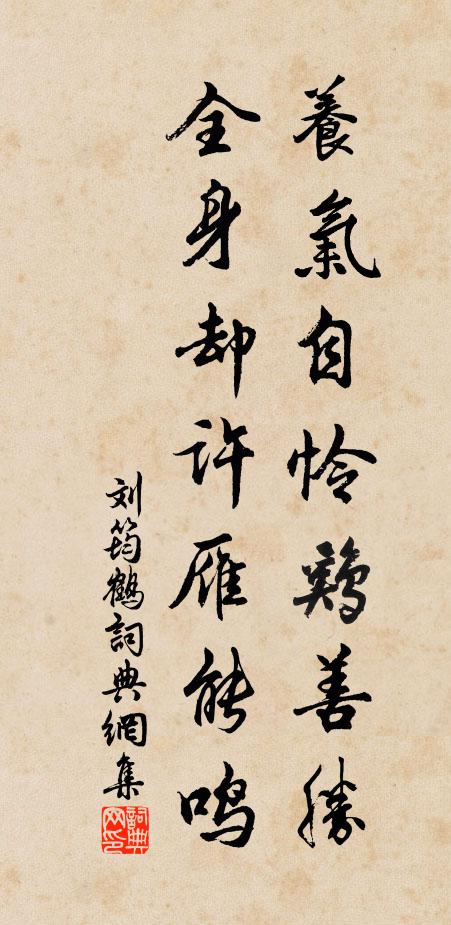 養氣自怜鷄善勝
全身却许雁能鸣
刘筠鶴詞典網集
詞典网印